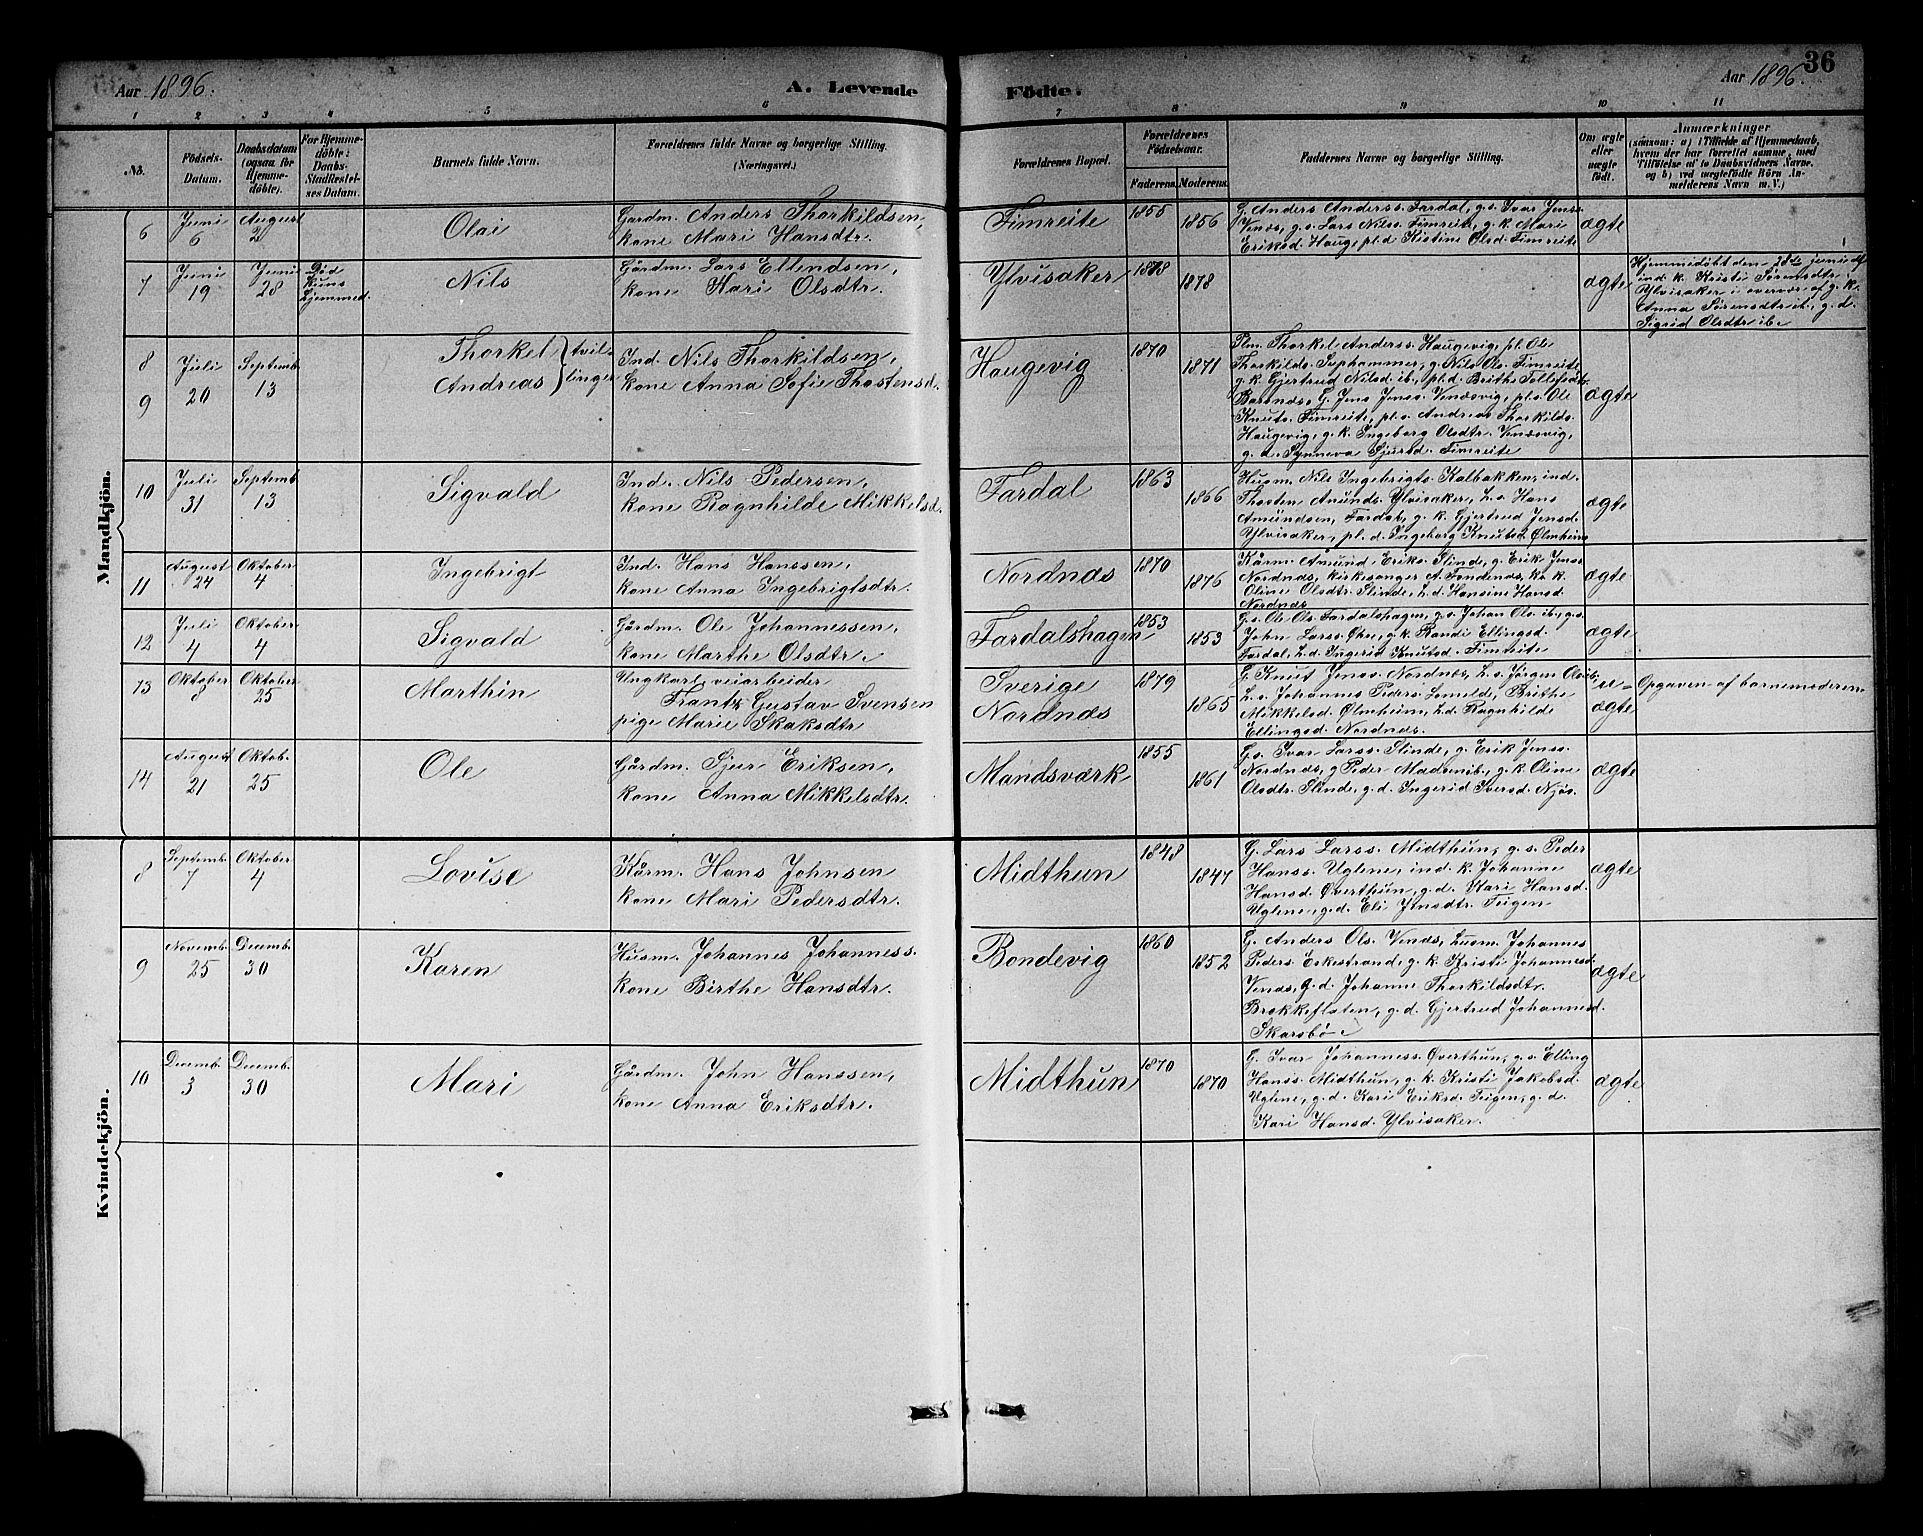 Aar 1896.
A. Levende Födte.
Aar 1896.
36
1 2 3 4 5 6 7 8 9 10 11
No.
Födsels-
Datum.
Daabsdatum
(ogsaa for
Hjemme-
döbte).
For Hjemme-
döbte:
Daabs-
Stadfæstel-
ses Datum.
Barnets fulde Navn.
Forældrenes fulde Navne og borgerlige Stilling.
(Næringsvei.)
Forældrenes Bopæl.
Forældrenes
Födselsaar.
Faderens. Moderens.
Faddernes Navne og borgerlige Stilling.
Om ægte
eller
uægte
født.
Anmærkninger
(saasom: a) i Tilfælde af Hjemmedaab,
hvem der har forrettet samme, med
Tilføielse af to Daabsvidners Navne,
og b) ved uægtefödte Börn An-
melderens Navn m. V.)
Mandkjön.
6
Juni
6
August
2
Olai
Gårdm. Anders Thorkildsen,
kone Mari Hansdtr.
Fimreite
1855
1856
G. Anders Anderss. Fardal, g.s. Ivar Jenss.
Venæs, g.s. Lars Nilss. Fimreite, g.k. Mari
Eriksd. Hauge, pl.d. Kistine Olsd. Fimreite
ægte
7
Juni
19
Juni
28
Död
kuns
hjemmed.
Nils
Gårdm. Lars Ellendsen,
kone Kari Olsdtr.
Ylvisaker
1878
1878
ægte
Hjemmedöbt den 28de juni af
ind. k. Kristi Sørensdtr.
Ylvisaker i overvær af g. k.
Anna Sørensdtr. ib., g. d.
Sigrid Olsdtr ib.
8
9
Juli
20
Septemb.
13
Thorkel
Andreas
tvil-
linger
Ind. Nils Thorkildsen,
kone Anna Sofie Thostensd.
Haugevig
1870
1871
Plm. Thorkel Anderss. Haugevig, pl. Ole
Thorkilds. Sophammer, g. Nils Ols. Fimreite
g. k. Gjertrud Nilsd. ib., pl.d. Brithe Tollefsdtr.
Barsnæs, G. Jens Jenss. Venæsvig, pl.s. Ole
Knuts. Fimreite, pl.s. Andreas Thorkilds.
Haugevig, g.k. Ingeborg Olsdtr. Venæsvig,
g. d. Synneva Sjursd. Fimreite
ægte
10
Juli
31
Septemb.
13
Sigvald
Ind. Nils Pedersen,
kone Ragnhilde Mikkelsd.
Fardal
1863
1866
Husm. Nils Ingebrigts. Kalbakken, ind.
Thosten Amunds. Ylvisaker, h.s. Hans
Amundsen, Fardal, g. k. Gjertrud Jensd.
Ylvisaker, pl. d. Ingeborg Knutsd. Ølmheim
ægte
11
August
24
Oktober
4
Ingebrigt
Ind. Hans Hanssen,
kone Anna Ingebrigtsdtr.
Nordnæs
1870
1876
Kårm. Amund Eriks. Slinde, g. Erik Jenss.
Nordnæs, kirkesanger A. Fondenæs, k. k.
Oline Olsdtr. Slinde, h.d. Hansine Hansd.
Nordnæs
ægte
12
Juli
4
Oktober
4
Sigvald
Gårdm. Ole Johannessen,
kone Marthe Olsdtr.
Fardalshagen
1853
1853
G.s. Ole Ols. Fardalshagen, g.s. Johan Ols. ib., g.s.
John Larss. Øhn, g.k. Randi Ellingsd.
Fardal, h.d. Ingerid Knutsd. Fimreite
ægte
13
Oktober
8
Oktober
25
Marthin
Ungkarl, veiarbeider
Frantz Gustav Svensen
pige Marie Skaksdtr
Sverige
Nordnæs
1879
1865
G. Knut Jenss. Nordnæs, h.s. Jørgen Ols. ib.,
h.s. Johannes Peders. Lomelde, Brithe
Mikkelsd. Ølmheim, h.d. Ragnhilde
Ellingsd. Nordnæs.
u-
ægte
Opgaven af barnemoderen
14
August
21
Oktob.
25
Ole
Gårdm. Sjur Eriksen,
kone Anna Mikkelsdtr.
Mandsværk
1855
1861
G.s. Ivar Larss. Slinde, g. Erik Jenss.
Nordnæs, g. Peder Madsen ib., g.k. Oline
Olsdtr. Slinde, g.d. Ingerid Iversd. Njøs.
ægte
Kvindekjön.
8
Septemb.
7
Oktober
4
Lovise
Kårm. Hans Johnsen
kone Mari Pedersdtr.
Midthun
1848
1847
G. Lars Larss. Midthun, g.s. Peder
Hanss. Uglene, ind. k. Johanne
Hansd. Øverthun, g.d. Kari Hansd.
Uglene, g.d. Eli Jensdtr. Teigen
ægte
9
Novemb.
25
Decemb.
30
Karen
Husm. Johannes Johanness.
kone Birthe Hansdtr.
Bondevig
1860
1852
G. Anders Ols. Venæs, husm. Johannes
Peders. Eskestrand, g.k. Kristi Johannesd.
Venæs, g.d. Johanne Thorkildsdtr.
Brekkeflaten, g.d. Gjertrud Johannesd.
Skarsbø
ægte
10
Decemb.
3
Decemb.
30
Mari
Gårdm. John Hanssen,
kone Anna Eriksdtr.
Midthun
1870
1870
G. Ivar Johanness. Øverthun, g.s. Elling
Hanss. Midthun, g.k. Kristi Jakobsd.
Uglene, g.d. Kari Eriksd. Teigen, g.d.
Kari Hansd. Ylvisaker.
ægte